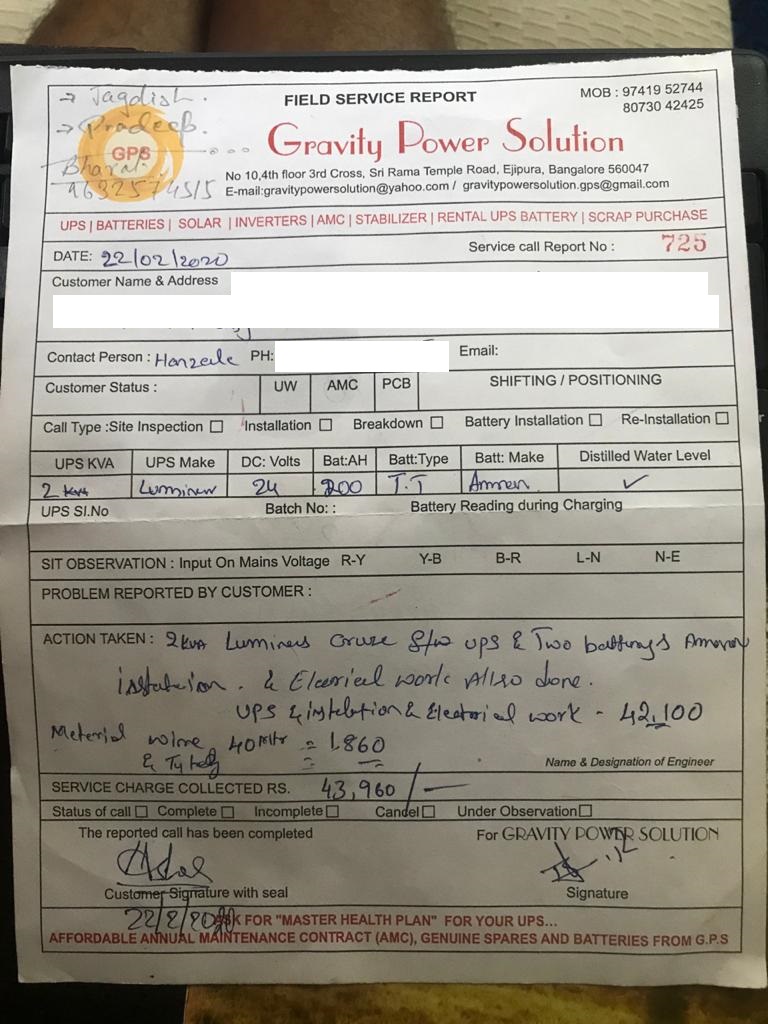 → Jagdish.
FIELD SERVICE REPORT
MOB : 97419 52744
80730 42425
→ Pradeeb.
GPS
Gravity Power Solution
Bharat
9632574515
No 10,4th floor 3rd Cross, Sri Rama Temple Road, Ejipura, Bangalore 560047
E-mail:gravitypowersolution@yahoo.com / gravitypowersolution.gps@gmail.com
UPS | BATTERIES | SOLAR | INVERTERS | AMC | STABILIZER | RENTAL UPS BATTERY | SCRAP PURCHASE
DATE: 22/02/2020 Service call Report No : 725
Customer Name & Address
Contact Person : PH: Email:
Customer Status : UW AMC PCB SHIFTING / POSITIONING
Call Type :Site Inspection Installation Breakdown Battery Installation Re-Installation
UPS KVA UPS Make DC: Volts Bat:AH Batt:Type Batt: Make Distilled Water Level
2 kva Luminew 24 200 T.T Amron ✓
UPS SI.No Batch No: : Battery Reading during Charging
SIT OBSERVATION : Input On Mains Voltage R-Y Y-B B-R L-N N-E
PROBLEM REPORTED BY CUSTOMER :
ACTION TAKEN : 2kva Luminers Cruze S/w UPS & Two batterys Amaron
installation . & Elecrical work Allso done.
UPS & instalation & Electrical work - 42,100
Meterial wire 40 Mtr = 1860
& Ty
Name & Designation of Engineer
SERVICE CHARGE COLLECTED RS. 43,960/-
Status of call Complete Incomplete Cancel Under Observation
The reported call has been completed For GRAVITY POWER SOLUTION
Customer Signature with seal Signature
22/2/2020
ASK FOR "MASTER HEALTH PLAN" FOR YOUR UPS...
AFFORDABLE ANNUAL MAINTENANCE CONTRACT (AMC), GENUINE SPARES AND BATTERIES FROM G.P.S